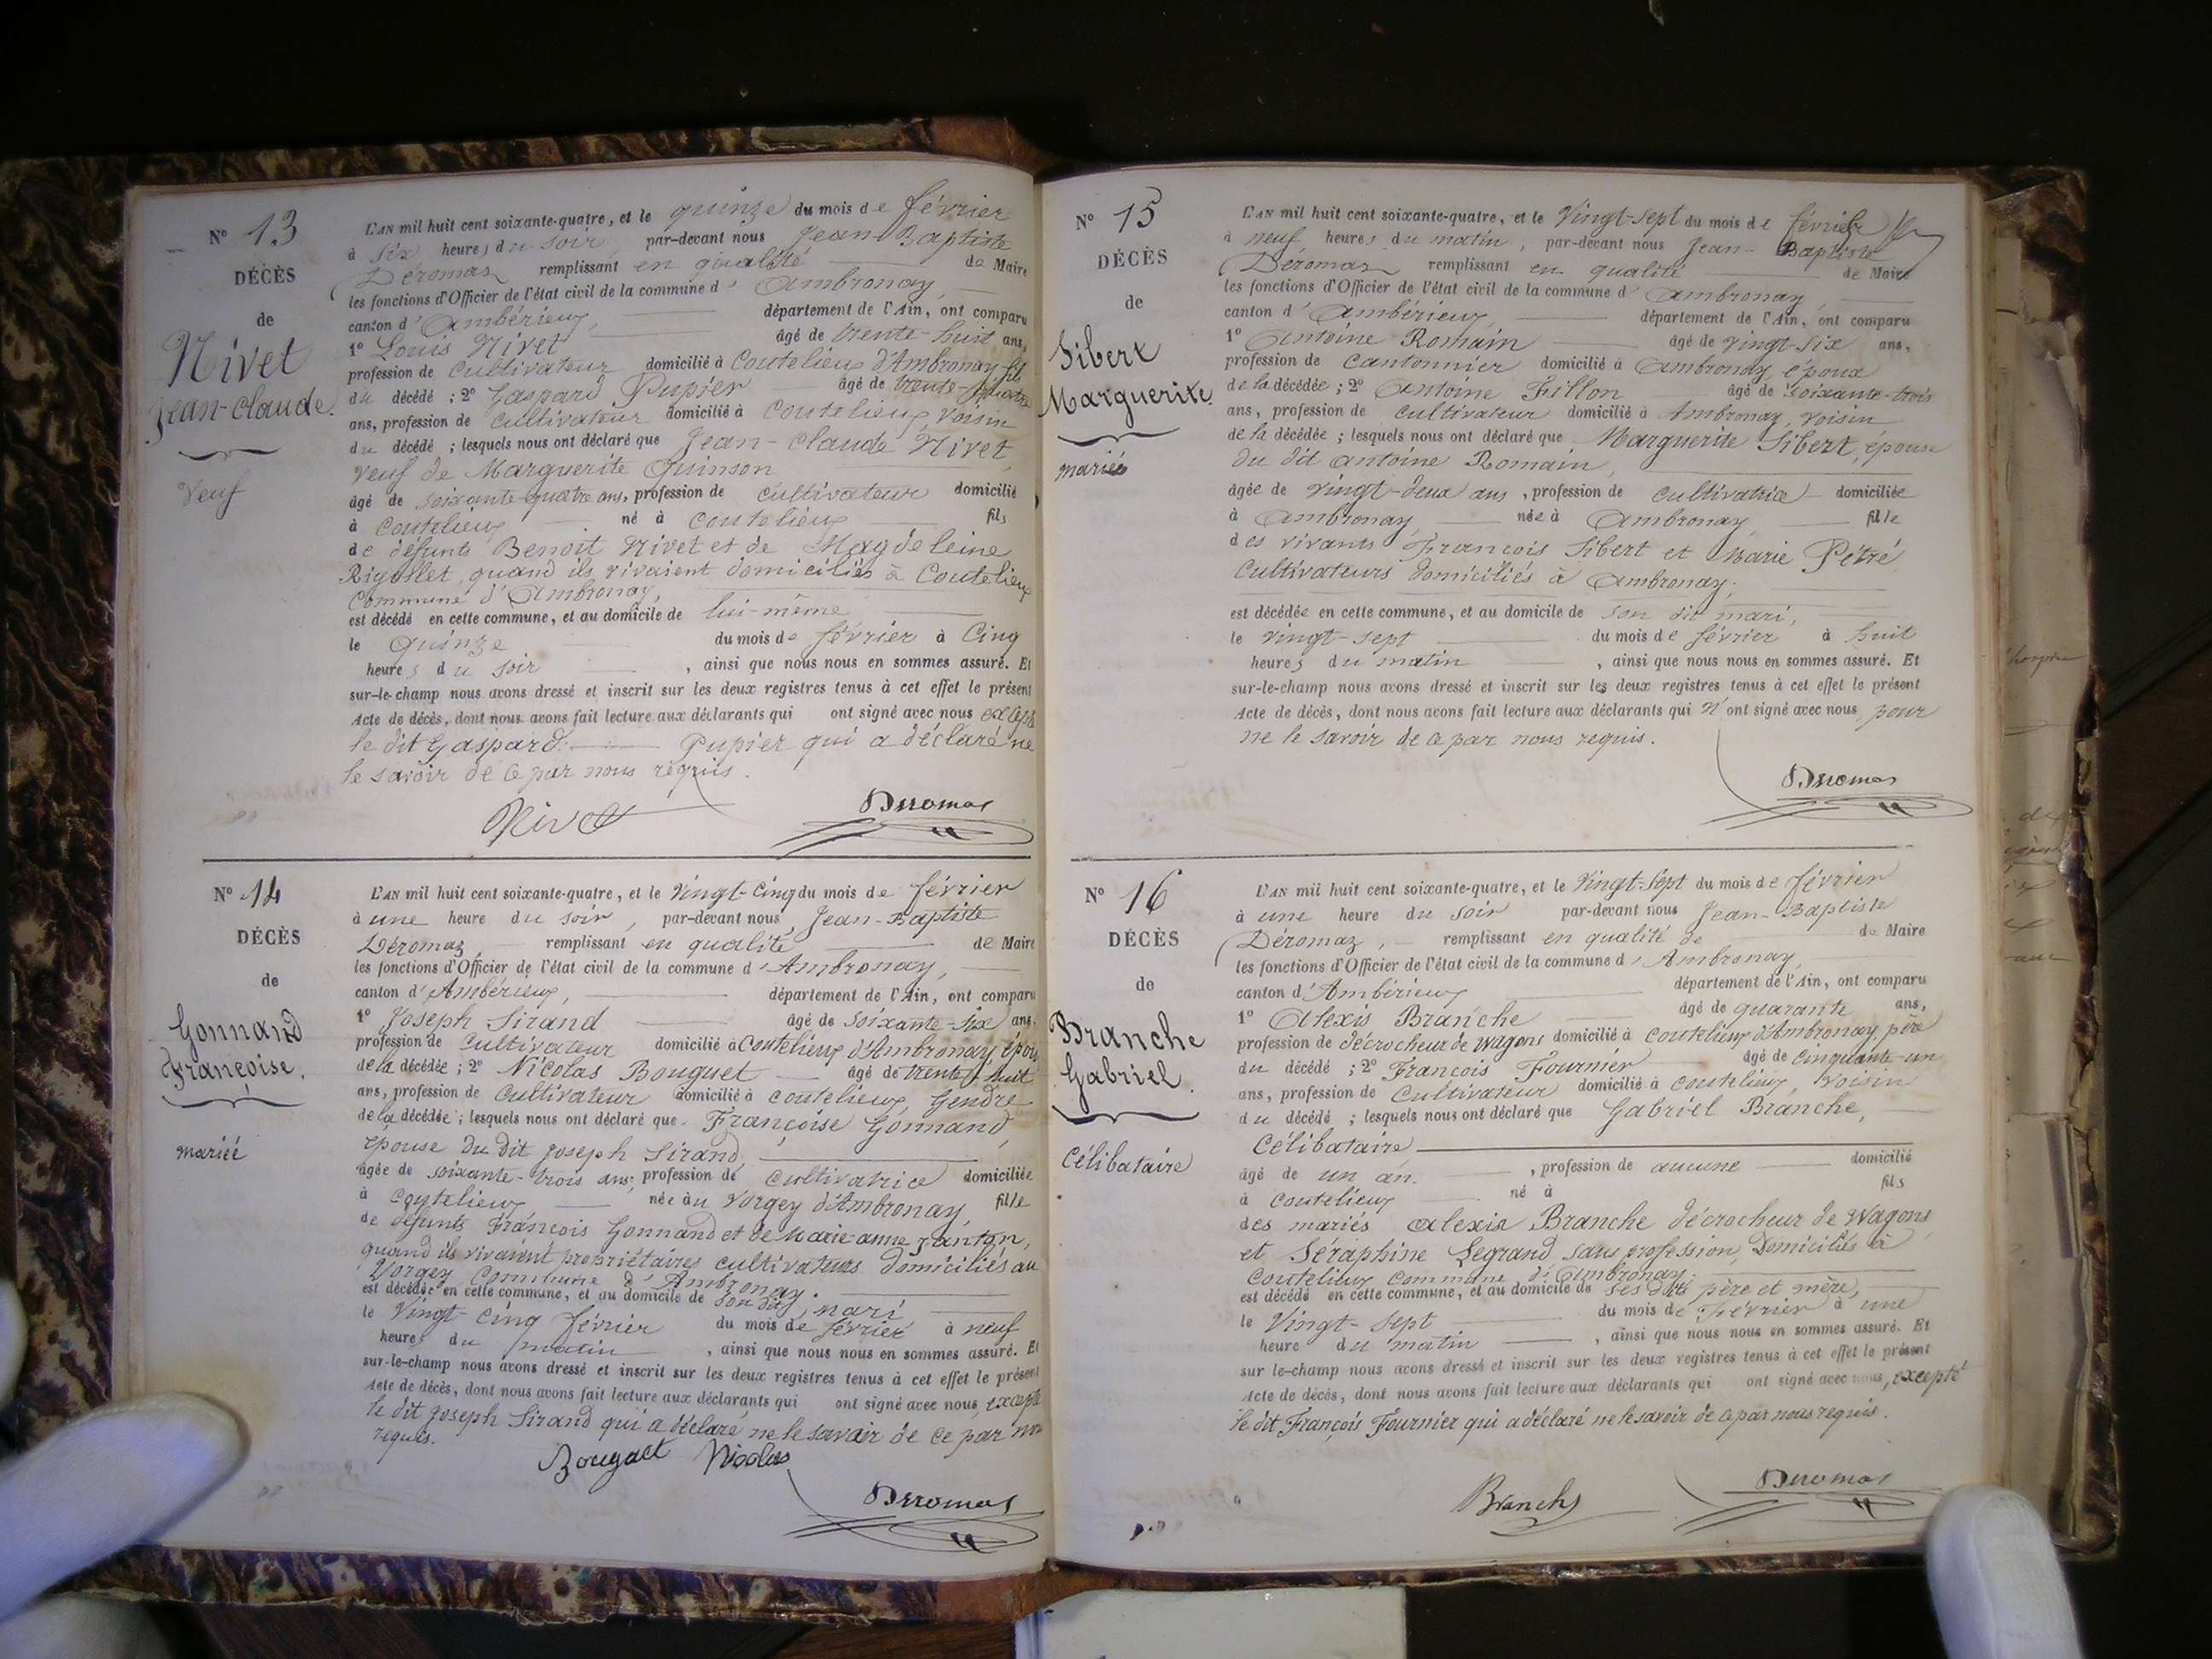 N° 13
DÉCÈS
de
Nivet
Jean-Claude.
Veuf
L'AN mil huit cent soixante-quatre, et le quinze du mois de février
à six heures du soir, par-devant nous Jean-Baptiste
Déromas remplissant en qualité de Maire
les fonctions d'Officier de l'état civil de la commune d'Ambronay,
canton d'Ambérieux, département de l'Ain, ont comparu
1° Louis Nivet âgé de trente-huit ans,
profession de cultivateur domicilié à Coutelieux d'Ambronay fils
du décédé ; 2° Gaspard Pupier âgé de trente-quatre
ans, profession de cultivateur domicilié à Coutelieux, voisin
du décédé ; lesquels nous ont déclaré que Jean-Claude Nivet,
veuf de Marguerite Quinson
âgé de soixante-quatre ans, profession de cultivateur domicilié
à Coutelieux né à Coutelieux fils
de défunts Benoit Nivet et de Magdeleine
Rigollet, quand ils vivaient domiciliés à Coutelieux
Commune d'Ambronay,
est décédé en cette commune, et au domicile de lui-même
le quinze du mois de février à Cinq
heures du soir, ainsi que nous nous en sommes assuré. Et
sur-le-champ nous avons dressé et inscrit sur les deux registres tenus à cet effet le présent
Acte de décès, dont nous avons fait lecture aux déclarants qui ont signé avec nous excepté
le dit Gaspard Pupier qui a déclaré ne
le savoir de ce par nous requis.
Nivet Deromas
N° 14
DÉCÈS
de
Gonnand
Françoise.
mariée
L'AN mil huit cent soixante-quatre, et le Vingt-Cinq du mois de février
à une heure du soir, par-devant nous Jean-Baptiste
Déromaz, remplissant en qualité de Maire
les fonctions d'Officier de l'état civil de la commune d'Ambronay,
canton d'Ambérieux, département de l'Ain, ont comparu
1° Joseph Sirand âgé de soixante-six ans,
profession de cultivateur domicilié à Coutelieux d'Ambronay, époux
de la décédée ; 2° Nicolas Bouguet âgé de trente-huit
ans, profession de cultivateur domicilié à Coutelieux, Gendre
de la décédée ; lesquels nous ont déclaré que Françoise Gonnand,
épouse du dit Joseph Sirand,
âgée de soixante-trois ans, profession de cultivatrice domiciliée
à Coutelieux née au Vorgey d'Ambronay, fille
de défunts François Gonnand et de Marie-anne Janton,
quand ils vivaient propriétaires cultivateurs domiciliés au
Vorgey Commune d'Ambronay.
est décédée en cette commune, et au domicile de son dit mari
le Vingt-cinq février du mois de février à neuf
heures du matin, ainsi que nous nous en sommes assuré. Et
sur-le-champ nous avons dressé et inscrit sur les deux registres tenus à cet effet le présent
Acte de décès, dont nous avons fait lecture aux déclarants qui ont signé avec nous, excepté
le dit Joseph Sirand qui a déclaré ne le savoir de ce par nous
requis.
Nicolas
Deromas
N° 15
DÉCÈS
de
Sibert
Marguerite.
mariée
L'AN mil huit cent soixante-quatre, et le Vingt-sept du mois de février
à neuf heures du matin, par-devant nous Jean-Baptiste
Déromaz remplissant en qualité de Maire
les fonctions d'Officier de l'état civil de la commune d'Ambronay,
canton d'Ambérieux, département de l'Ain, ont comparu
1° Antoine Romain âgé de vingt-six ans,
profession de cantonnier domicilié à Ambronay époux
de la décédée ; 2° Antoine Fillon âgé de soixante-trois
ans, profession de cultivateur domicilié à Ambronay, voisin
de la décédée ; lesquels nous ont déclaré que Marguerite Sibert, épouse
du dit Antoine Romain,
âgée de vingt-deux ans, profession de cultivatrice domiciliée
à Ambronay, née à Ambronay fille
des vivants François Sibert et Marie Pétré
cultivateurs domiciliés à Ambronay,
est décédée en cette commune, et au domicile de son dit mari,
le vingt-sept du mois de février à huit
heures du matin, ainsi que nous nous en sommes assuré. Et
sur-le-champ nous avons dressé et inscrit sur les deux registres tenus à cet effet le présent
Acte de décès, dont nous avons fait lecture aux déclarants qui n'ont signé avec nous, pour
ne le savoir de ce par nous requis.
Deromas
N° 16
DÉCÈS
de
Branche
Gabriel.
Célibataire
L'AN mil huit cent soixante-quatre, et le Vingt-Sept du mois de février
à une heure du soir par-devant nous Jean-Baptiste
Déromaz, remplissant en qualité de de Maire
les fonctions d'Officier de l'état civil de la commune d'Ambronay,
canton d'Ambérieux département de l'Ain, ont comparu
1° Alexis Branche âgé de quarante ans,
profession de décrocheur de wagons domicilié à Coutelieux d'Ambronay, père
du décédé ; 2° François Fournier âgé de Cinquante-un
ans, profession de cultivateur domicilié à Coutelieux, voisin
du décédé ; lesquels nous ont déclaré que Gabriel Branche,
Célibataire
âgé de un an, profession de aucune domicilié
à Coutelieux né à fils
des mariés Alexis Branche décrocheur de Wagons
et Séraphine Legrand sans profession, domiciliés à
Coutelieux commune d'Ambronay.
est décédé en cette commune, et au domicile de ses dits père et mère,
le Vingt-sept du mois de Février à une
heure du matin, ainsi que nous nous en sommes assuré. Et
sur le-champ nous avons dressé et inscrit sur les deux registres tenus à cet effet le présent
Acte de décès, dont nous avons fait lecture aux déclarants qui ont signé avec nous, excepté
le dit François Fournier qui a déclaré ne le savoir de ce par nous requis.
Deromas